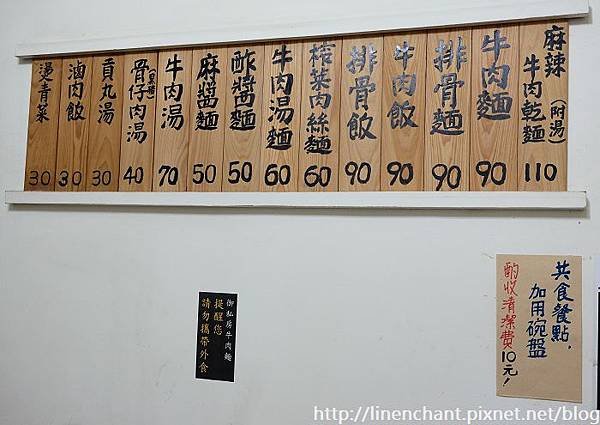 麻辣
牛肉乾麵(附湯)
110
牛肉麵
90
排骨麵
90
牛肉飯
90
排骨飯
90
榨菜肉絲麵
60
牛肉湯麵
60
酢醬麵
50
麻醬麵
50
牛肉湯
70
骨仔肉湯
40
貢丸湯
30
滷肉飯
30
燙青菜
30
御私房牛肉麵
提醒您
請勿攜帶外食
共食餐點,
加用碗盤
酌收清潔費10元!
http://linenchant.pixnet.net/blog